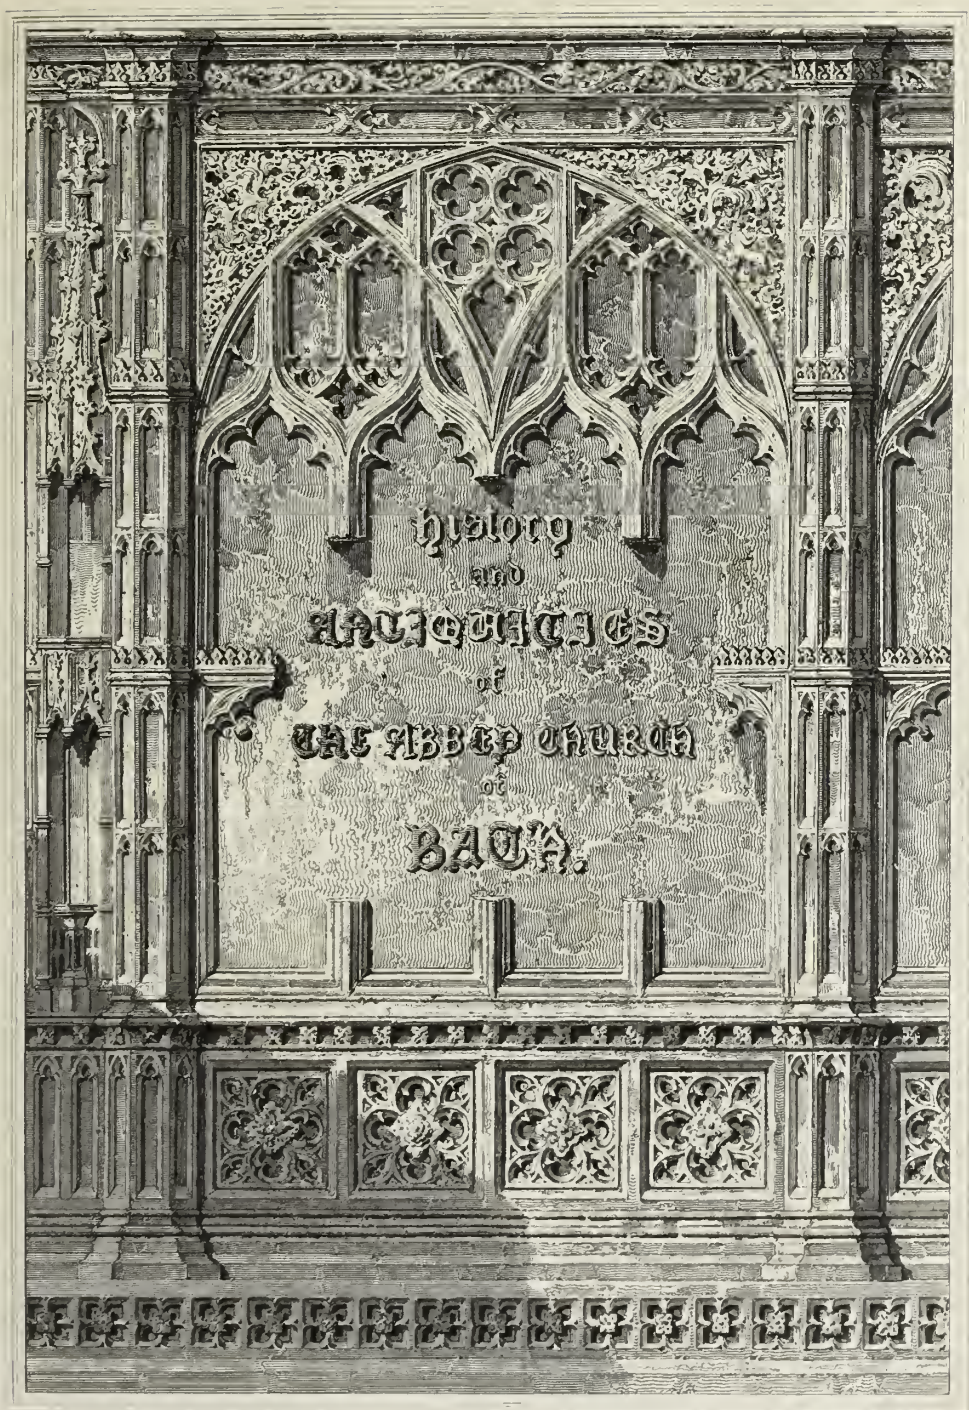 History
and
ANTIQUITIES
of
THE ABBEY CHURCH
of
BATH.